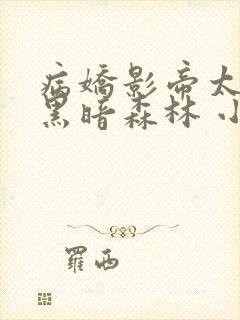 病嬌影帝太
黑暗森林 小
羅西